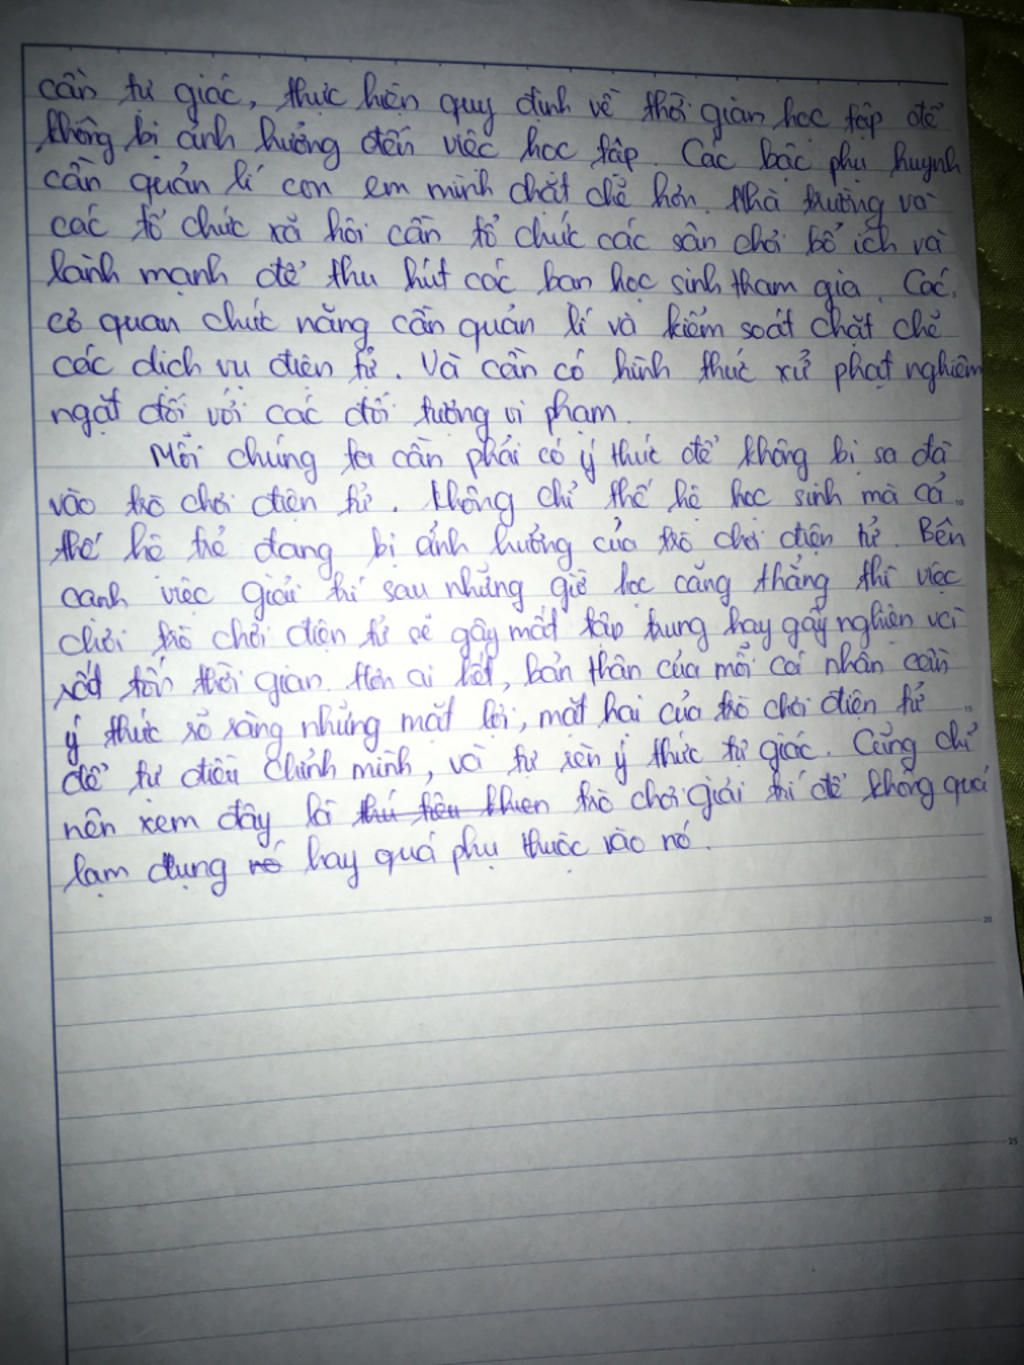 cần tự giác, thực hiện quy định về thời gian học tập để
không bị ảnh hưởng đến việc học tập. Các bậc phụ huynh
cần quản lí con em mình chặt chẽ hơn. Nhà trường và
các tổ chức xã hội cần tổ chức các sân chơi bổ ích và
lành mạnh để thu hút các bạn học sinh tham gia. Các
cơ quan chức năng cần quản lí và kiểm soát chặt chẽ
các dịch vụ điện tử. Và cần có hình thức xử phạt nghiêm
ngặt đối với các đối tượng vi phạm.
Mỗi chúng ta cần phải có ý thức để không bị sa đà
vào trò chơi điện tử. Không chỉ thế hệ học sinh mà cả
thế hệ trẻ đang bị ảnh hưởng của trò chơi điện tử. Bên
cạnh việc giải trí sau những giờ học căng thẳng thì việc
chơi trò chơi điện tử sẽ gây mất tập trung hay gây nghiện và
rất tốn thời gian. Hơn ai hết, bản thân của mỗi cá nhân cần
ý thức rõ ràng những mặt lợi, mặt hại của trò chơi điện tử
để tự điều chỉnh mình, và tự rèn ý thức tự giác. Cũng chỉ
nên xem đây là thú tiêu khiển trò chơi giải trí để không quá
lạm dụng nó hay quá phụ thuộc vào nó.
20
25